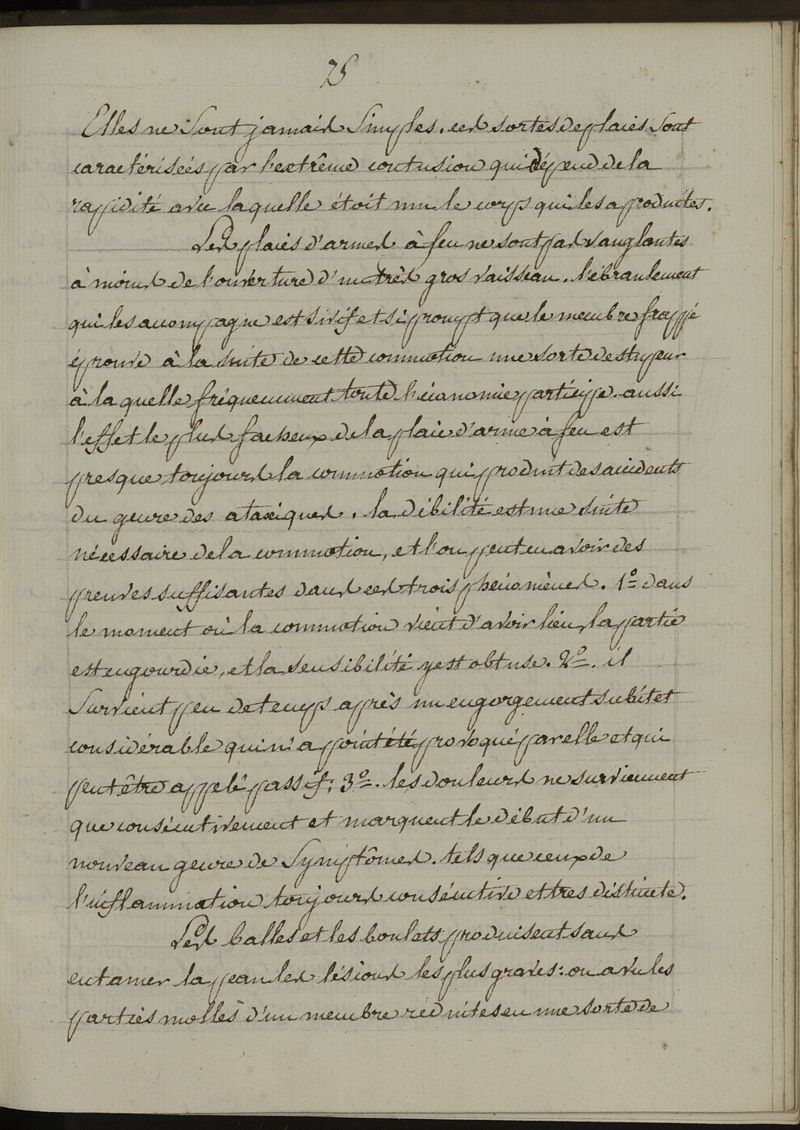 75
Elles ne sont jamais simples. ces sortes de plaies sont
caractérisées par l'extrême contusion qui dépend de la
rapidité avec laquelle étoit mu le corps qui les a produites.
Les plaies d'armes à feu ne sont pas sanglantes
à moins de l'ouverture d'un très gros vaisseau. l'ébranlement
qui les accompagne est si vif et si prompt que le membre frappé
éprouve à la suite de cette commotion une sorte de stupeur
à laquelle fréquemment toute l'économie participe. aussi
l'effet le plus facheux de la plaie d'arme à feu est
presque toujours la commotion qui produit des accidents
du genre des ataxiques. la débilité est une suite
nécessaire de la commotion, et l'on peut en avoir des
preuves suffisantes dans ces trois phénomènes. 1° dans
le moment où la commotion vient d'avoir lieu, la partie
est engourdie, et la sensibilité y est obtuse. 2°. il
survient peu de temps après un engorgement subit et
considérable qui n'a point été provoqué par elle et qui
peut être appelé passif; 3°. les douleurs ne surviennent
que consécutivement et marquent le début d'un
nouveau genre de symptômes. tels que ceux de
l'inflammation toujours consécutive et très distincte.
Les balles et les boulets produisent sans
entamer la peau les lésions les plus graves: on a vu les
parties molles d'un membre réduites en une sorte de